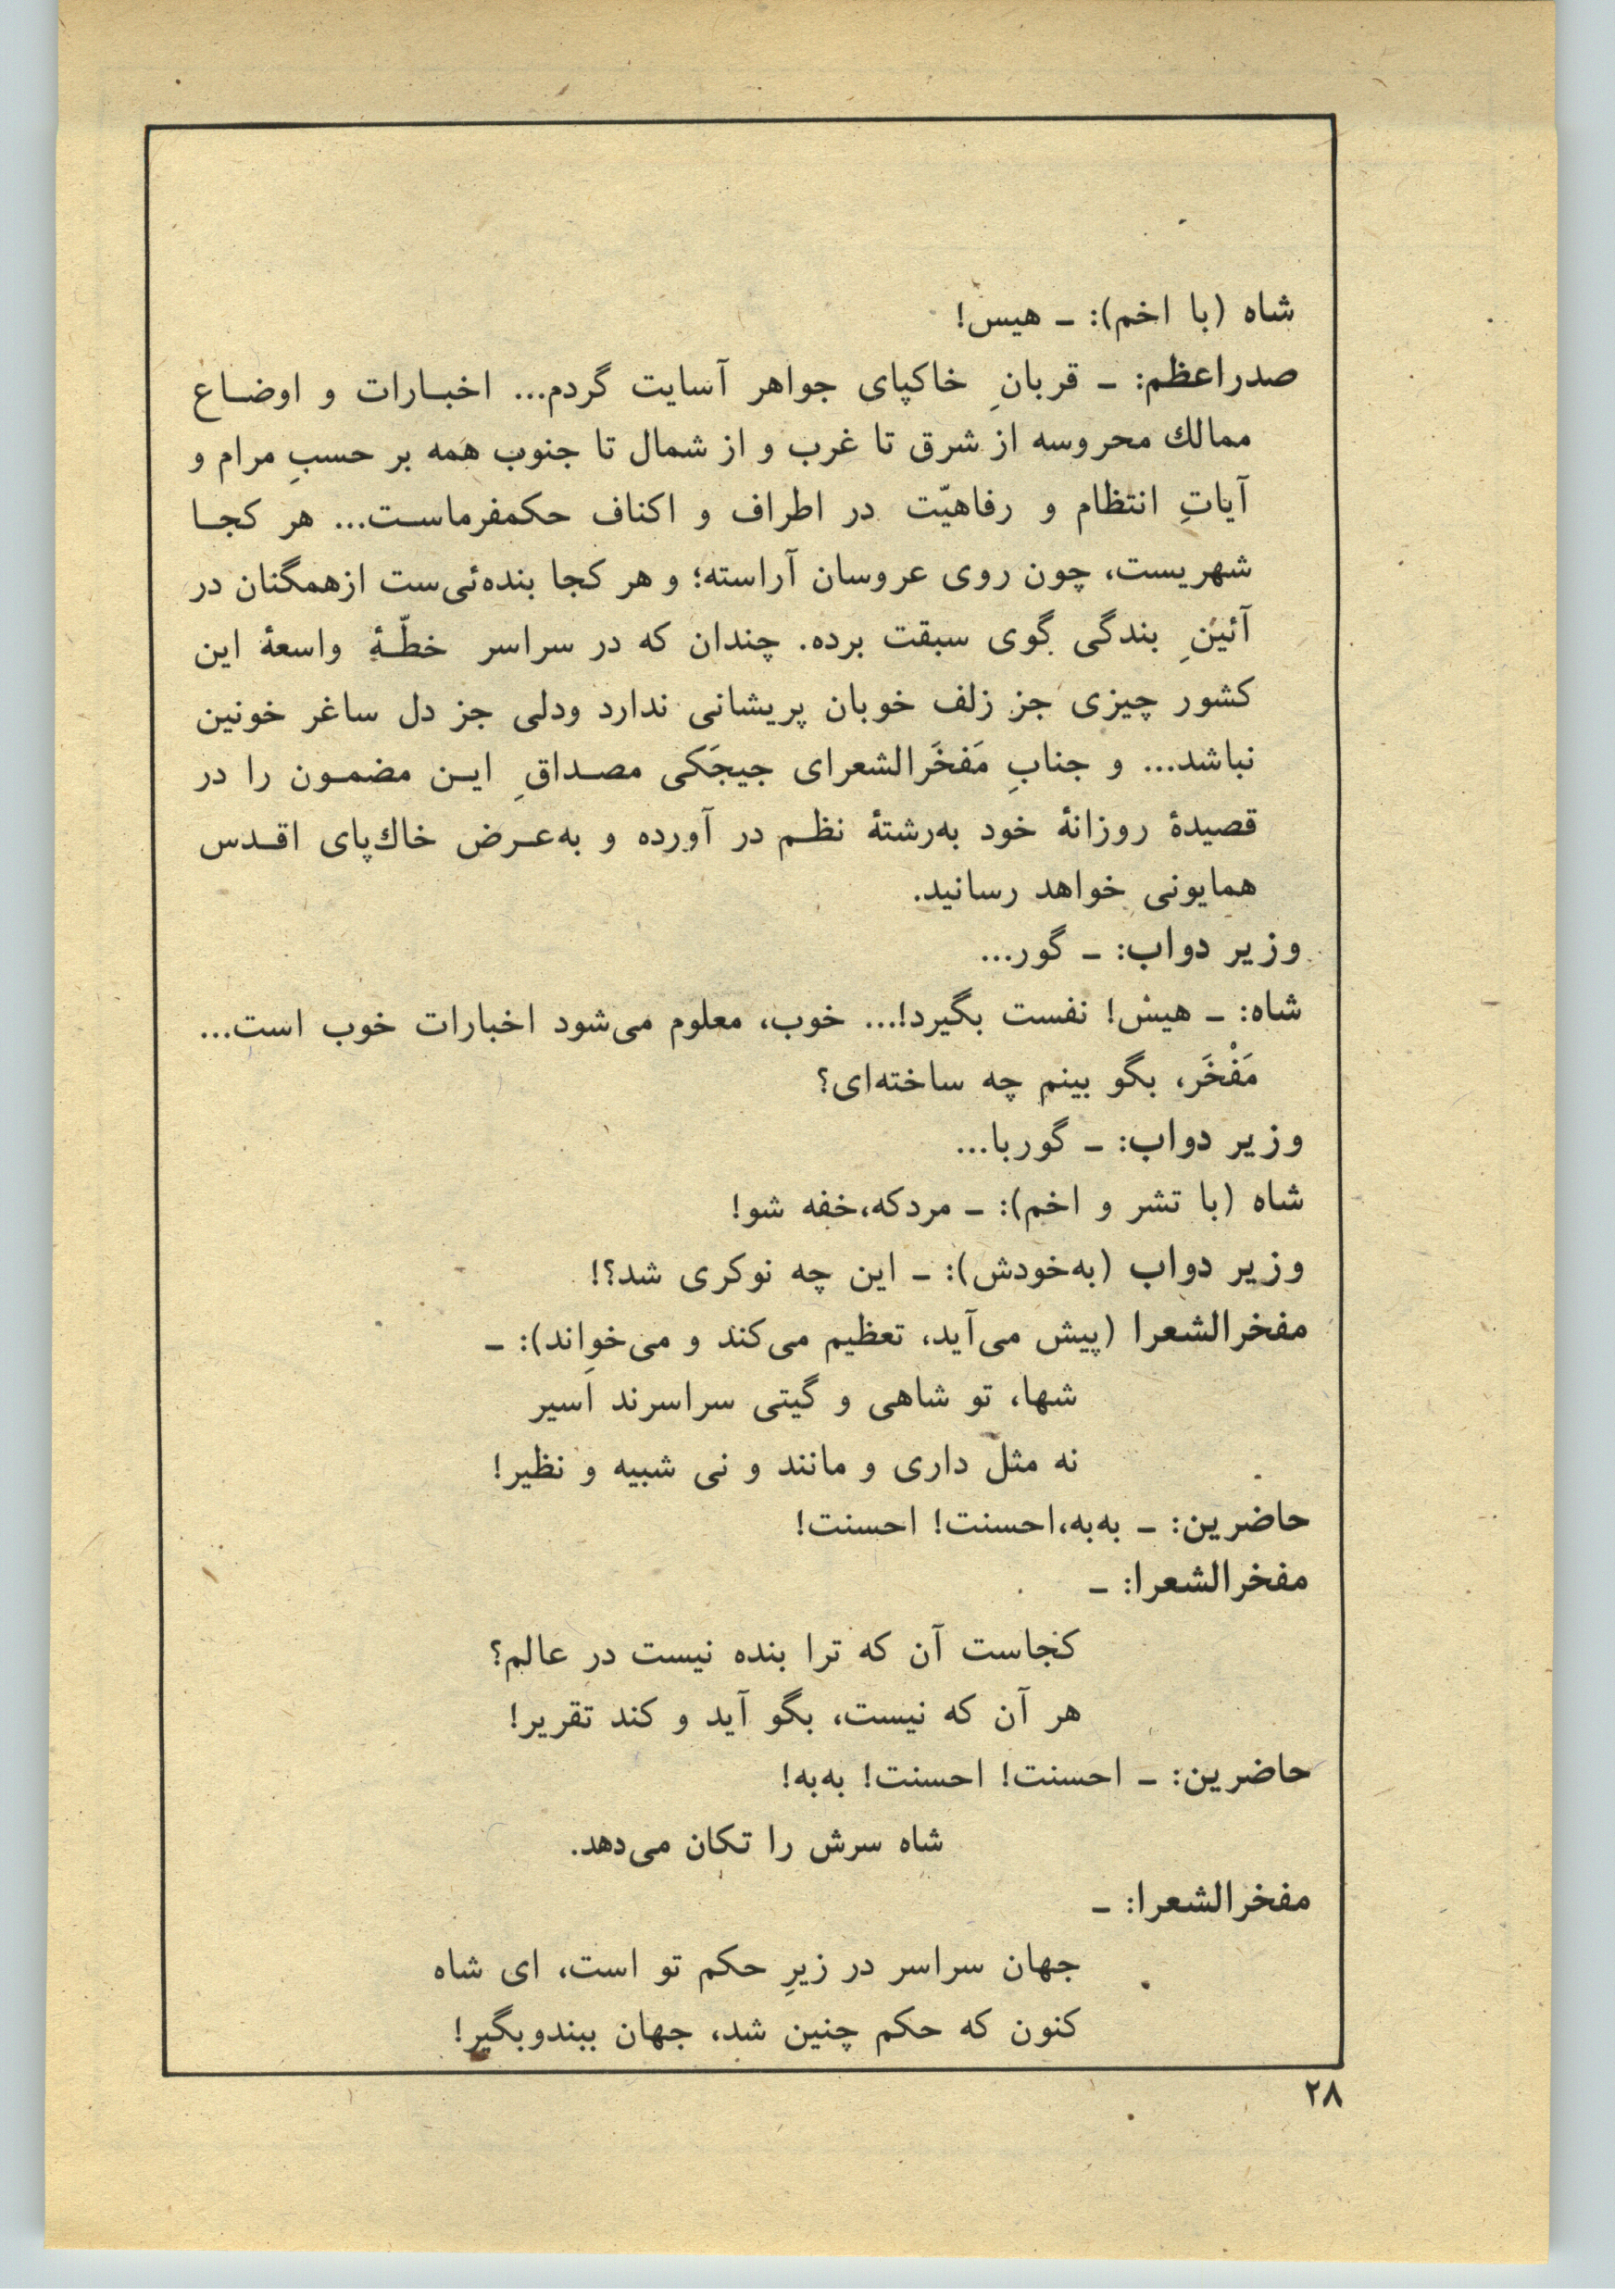 شاه (با اخم): ـ هیس!
صدراعظم: ـ قربانِ خاکپای جواهر آسایت گردم... اخبـارات و اوضـاع
ممالك محروسه از شرق تا غرب و از شمال تا جنوب همه بر حسبِ مرام و
آیاتِ انتظام و رفاهیّت در اطراف و اکناف حکمفرماسـت... هر کجـا
شهریست، چون روی عروسان آراسته؛ و هر کجا بنده‌ئی‌ست ازهمگنان در
آئینِ بندگی گوی سبقت برده. چندان که در سراسر خطّـهٔ واسعهٔ این
کشور چیزی جز زلف خوبان پریشانی ندارد ودلی جز دل ساغر خونین
نباشد... و جنابِ مَفخَرالشعرای جیجَکی مصـداقِ ایـن مضمـون را در
قصیدهٔ روزانهٔ خود به‌رشتهٔ نظـم در آورده و به‌عـرض خاك‌پای اقـدس
همایونی خواهد رسانید.
وزیر دواب: ـ گور...
شاه: ـ هیش! نفست بگیرد!... خوب، معلوم می‌شود اخبارات خوب است...
مَفْخَر، بگو بینم چه ساخته‌ای؟
وزیر دواب: ـ گوربا...
شاه (با تشر و اخم): ـ مردکه،خفه شو!
وزیر دواب (به‌خودش): ـ این چه نوکری شد؟!
مفخرالشعرا (پیش می‌آید، تعظیم می‌کند و می‌خواند): ـ
شها، تو شاهی و گیتی سراسرند اسیر
نه مثل داری و مانند و نی شبیه و نظیر!
حاضرین: ـ به‌به،احسنت! احسنت!
مفخرالشعرا: ـ
کجاست آن که ترا بنده نیست در عالم؟
هر آن که نیست، بگو آید و کند تقریر!
حاضرین: ـ احسنت! احسنت! به‌به!
شاه سرش را تکان می‌دهد.
مفخرالشعرا: ـ
جهان سراسر در زیرِ حکم تو است، ای شاه
کنون که حکم چنین شد، جهان ببندوبگیر!
۲۸